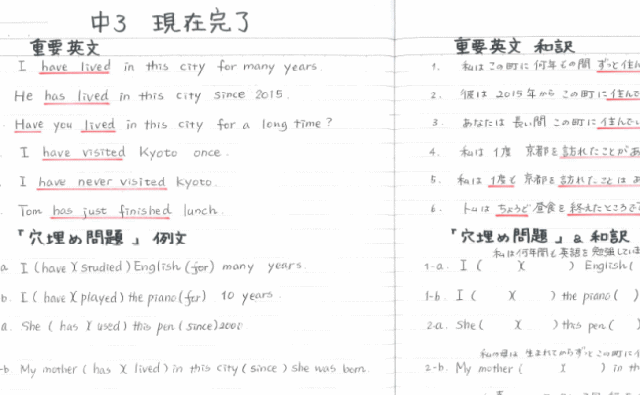 中3 現在完了
重要英文
I have lived in this city for many years.
He has lived in this city since 2015.
Have you lived in this city for a long time?
I have visited Kyoto once.
I have never visited Kyoto.
Tom has just finished lunch.
「穴埋め問題」例文
a. I (have)(studied) English (for) many years.
b. I (have)(played) the piano (for) 10 years.
a. She (has)(used) this pen (since) 2000
-b. My mother (has)(lived) in this city (since) she was born.
重要英文 和訳
1. 私は この町に 何年もの間 ずっと住ん
2. 彼は 2015年から この町に 住んで
3. あなたは 長い間 この町に 住んでい
4. 私は 1度 京都を 訪れたことがあ
5. 私は 1度も 京都を 訪れたことは あ
6. トムは ちょうど 昼食を 終えたところで
「穴埋め問題」& 和訳
私は何年間も 英語を勉強してい
1-a. I ( )( ) English (
1-b. I ( )( ) the piano ( )
2-a. She ( )( ) this pen (
私の母は 生まれてからずっと この町に
2-b. My mother ( )( ) in th